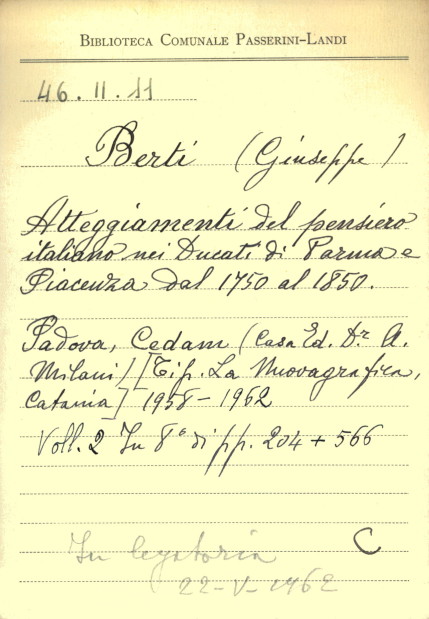 BIBLIOTECA COMUNALE PASSERINI-LANDI
46.II.11
Berti (Giuseppe)
Atteggiamenti del pensiero
italiano nei Ducati di Parma e
Piacenza dal 1750 al 1850.
Padova, Cedam (Casa Ed. Dr. A.
Milani) [Tip. La Nuovagrafica,
Catania] 1958-1962
Voll. 2 In 8° di pp. 204 + 566
In legatoria C
22-V-1962